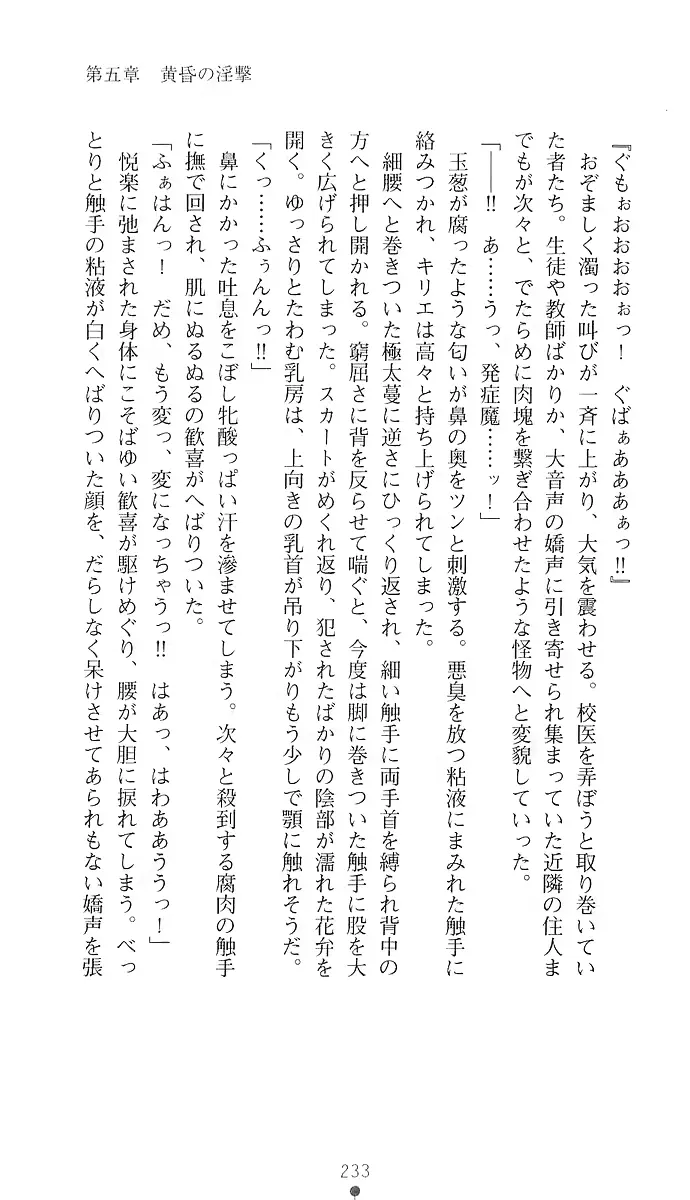 第五章　黄昏の淫撃
『ぐもぉおおおおぉっ！　ぐばぁあああぁっ‼』
　おぞましく濁った叫びが一斉に上がり、大気を震わせる。校医を弄ぼうと取り巻いてい
た者たち。生徒や教師ばかりか、大音声の嬌声に引き寄せられ集まっていた近隣の住人ま
でもが次々と、でたらめに肉塊を繋ぎ合わせたような怪物へと変貌していった。
「――‼　あ……うっ、発症魔……ッ！」
　玉葱が腐ったような匂いが鼻の奥をツンと刺激する。悪臭を放つ粘液にまみれた触手に
絡みつかれ、キリエは高々と持ち上げられてしまった。
　細腰へと巻きついた極太蔓に逆さにひっくり返され、細い触手に両手首を縛られ背中の
方へと押し開かれる。窮屈さに背を反らせて喘ぐと、今度は脚に巻きついた触手に股を大
きく広げられてしまった。スカートがめくれ返り、犯されたばかりの陰部が濡れた花弁を
開く。ゆっさりとたわむ乳房は、上向きの乳首が吊り下がりもう少しで顎に触れそうだ。
「くっ……ふぅんんっ‼」
　鼻にかかった吐息をこぼし牝酸っぱい汗を滲ませてしまう。次々と殺到する腐肉の触手
に撫で回され、肌にぬるぬるの歓喜がへばりついた。
「ふぁはんっ！　だめ、もう変っ、変になっちゃうっ‼　はあっ、はわああううっ！」
　悦楽に弛まされた身体にこそばゆい歓喜が駆けめぐり、腰が大胆に捩れてしまう。べっ
とりと触手の粘液が白くへばりついた顔を、だらしなく呆けさせてあられもない嬌声を張
233